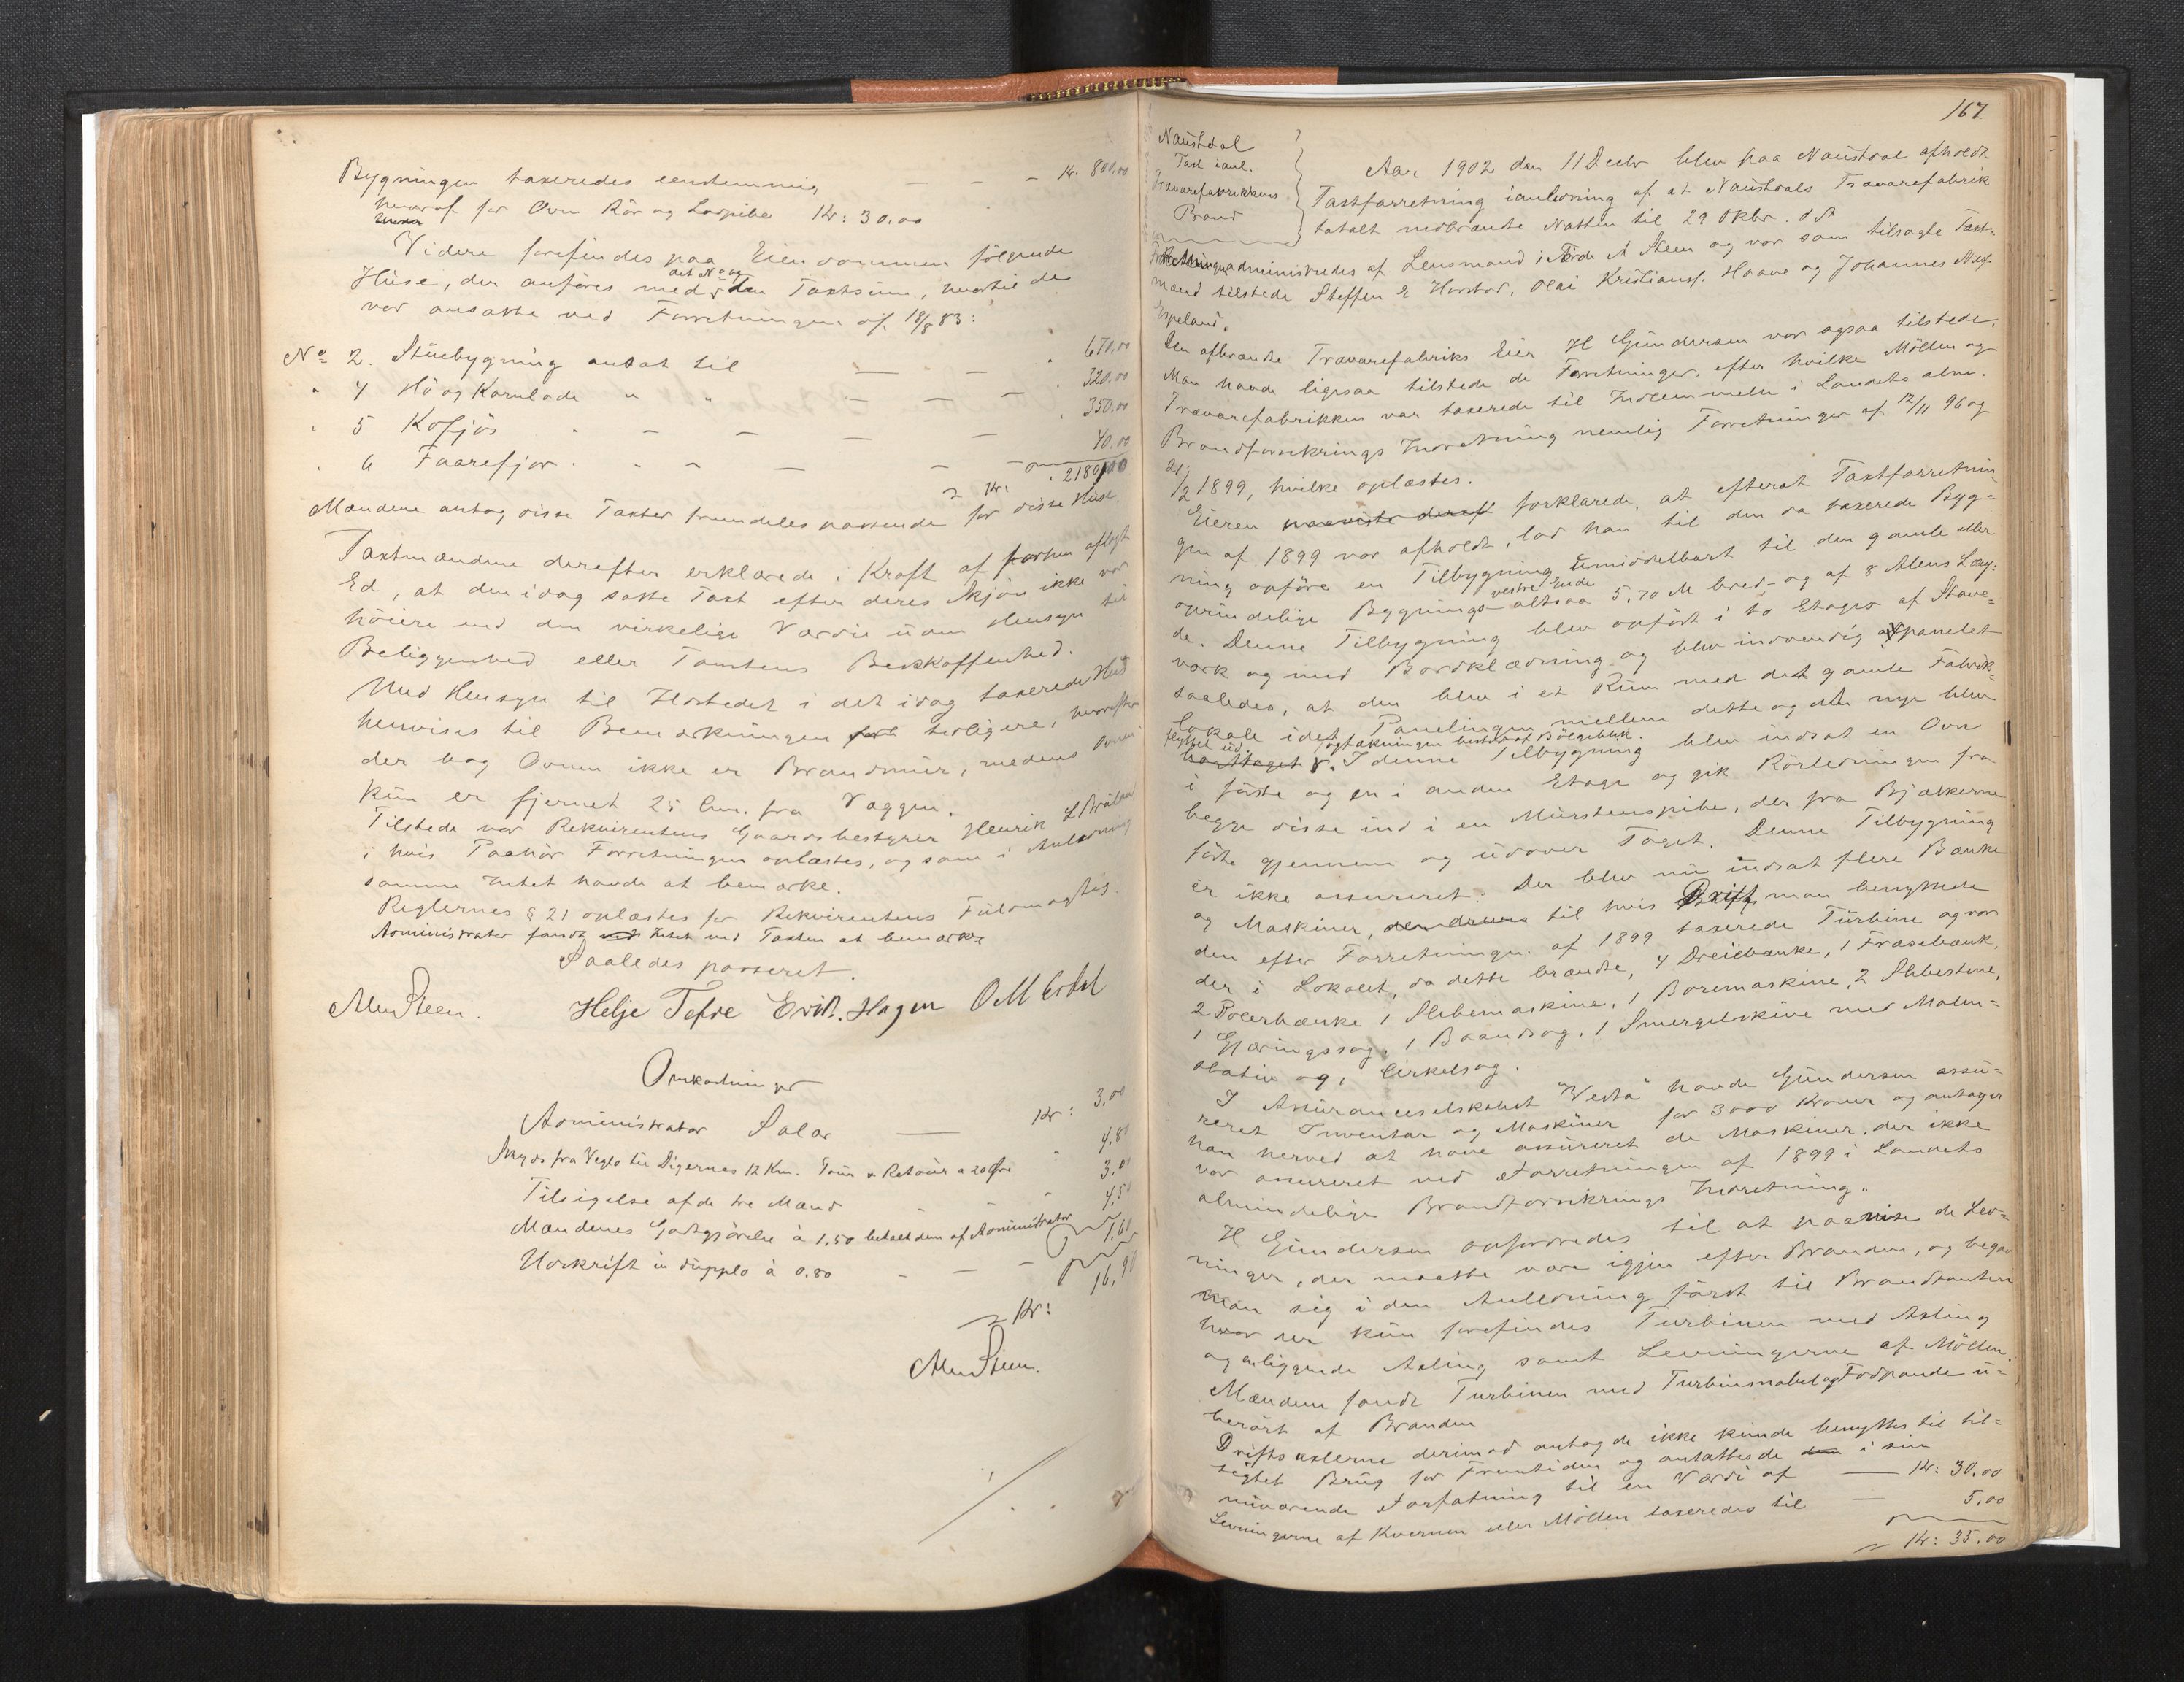 Bygningen taxeredes eenstemmig — — — Kr. 800,00
hvoraf for Ovn Rör og Lospibe Kr: 30.00
Videre forefindes paa Eiendommen fölgende
Huse, der anföres med det No og den Taxtsum, hvortil de
var ansatte ved Forretningen af 18/8 83:
No 2. Stuebygning ansat til — — " 670,00
" 4 Hö og Kornlade " " — — — " 320.00
" 5 Kofjös " — — — — " 350,00
" 6 Faarefjös " — — — — — 40.00
= Kr: 2180,00
Mændene antog disse Taxter fremdeles passende for disse Huse.
Taxtmændene derefter erklærede i Kraft af forhen aflagt
Ed, at den idag satte Taxt efter deres Skjön ikke var
höiere end den virkelige Værdie uden Hensyn til
Beliggenhed eller Tomtens Beskaffenhed.
Med Hensyn til Ildstedet i det idag taxerede Hus
henvises til Bemærkningen tidligere, hvorefter
der bag Ovnen ikke er Brandmur, medens Ovnen
kun er fjernet 25 Cm. fra Væggen.
Tilstede var Rekvirentens Gaardsbestyrer Henrik L
i hvis Paahör Forretningen oplæstes, og som i Anledning
samme Intet havde at bemærke.
Reglernes § 21 oplæstes for Rekvirentens Fuldmægtig.
Administrator fandt Intet ved Taxten at bemærke
Saaledes passeret.
Steen. Helje Tefre Erik. Hagen O M
Omkostninger
Administrator Salær — Kr: 3.00
Skyds fra til Digernes 12 Km. Tour & Retour a 20 Öre " 4.80
Tilsigelse af de tre Mænd - - " 3.00
Mændenes Godtgjörelse à 1.50 betalt dem af Administrator 4,50
Udskrift in duplo à 0.80 - - - 1,60
= Kr: 16,90
Steen.
167.
Naustdal
Taxt ianl.
Trævarefabrikkens
Brand
Aar 1902 den 11 Decbr blev paa Naustdal afholdt
Taxtforretning ianledning af at Naustdals Trævarefabrik
totalt nedbrændte Natten til 29 Oktbr. d A
Forretningen administredes af Lensmand i Förde A Steen og var som tilsagte Taxt-
mænd tilstede Steffen E Horstad, Olai Kristians. Haave og Johannes Nils.
Espeland.
Den afbrændte Trævarefabriks Eier H Gundersen var ogsaa tilstede.
Man havde ligesaa tilstede de Forretninger, efter hvilke Möllen og
Trævarefabrikken var taxerede til Indlemmelse i Landets alm.
Brandforsikrings Indretning nemlig Forretninger af 12/11 96 og
21/2 1899, hvilke oplæstes.
Eieren paaviste derefter forklarede, at efterat Taxtforretnin-
gen af 1899 var afholdt, lod han til den da taxerede Byg-
ning opföre en Tilbygning umiddelbart til den gamle eller
oprindelige Bygnings vestre Ende altsaa 5,70 M bred og af 8 Alens Læng-
de. Denne Tilbygning blev opfört i to Etager af Stave-
værk og med Bordklædning og blev indvendig panelet
saaledes, at den blev i et Rum med det gamle Fabrik-
lokale idet Panelingen mellem dette og det nye blev
flyttet ud. Tagtækningen bestod af Bölgeblik.
borttaget. I denne Tilbygning blev indsat en Ovn
i förste og en i anden Etage og gik Rörledningen fra
begge disse ind i en Murstenspibe, der fra Bjælkerne
förte gjennem og udover Taget. Denne Tilbygning
er ikke assureret. Der blev nu indsat flere Bænke
og Maskiner, til hvis Drift man benyttede
den efter Forretningen af 1899 taxerede Turbine og var
der i Lokalet, da dette brændte, 4 Dreiebænke, 1 Fræsebænk,
2 Poleerbænke 1 Slibemaskine, 1 Boremaskine, 2 Slibestene,
1 Gjæringssag, 1 Baandsag, 1 Smergelskive med Metal-
stativ og 1 Cirkelsag.
I Assuranceselskabet "Vesta" havde Gundersen assu-
reret Inventar og Maskiner for 3000 Kroner og antager
han herved at have assureret de Maskiner, der ikke
var assureret ved Forretningen af 1899 i Landets
almindelige Brandforsikrings Indretning.
H Gundersen opfordredes til at paavise de Lev-
ninger, der maatte være igjen efter Branden, og begav
man sig i den Anledning först til Brandtomten
hvor der kun forefindes Turbinen med Axling
og omliggende Axling samt Levningerne af Möllen.
Mændene fandt Turbinen med Turbinsnabel og Fodpande u-
berört af Branden
Driftsaxlerne derimod antog de ikke kunde benyttes til til-
sigtet Brug for Fremtiden og ansattes de i sin
nuværende Forfatning til en Værdi af — Kr: 30.00
Levningerne af Kværnen eller Möllen taxeredes til — 5,00
= Kr: 35.00